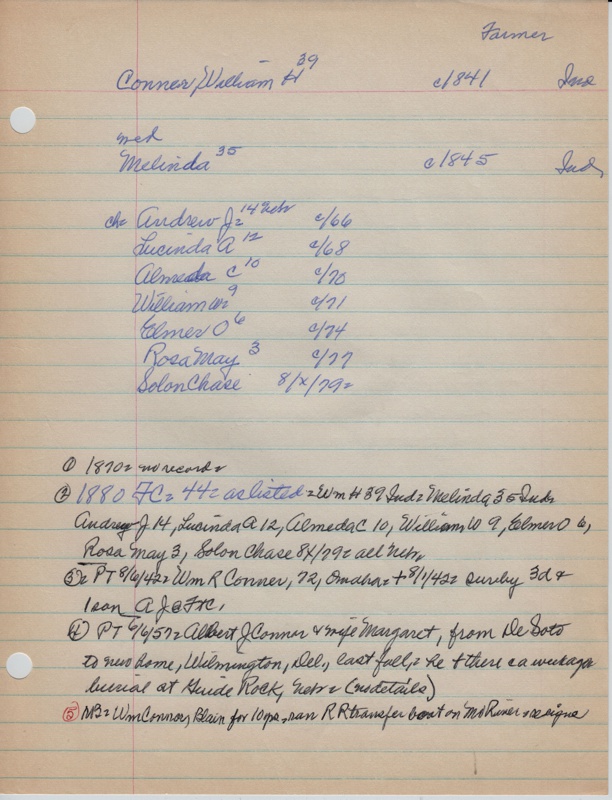 Farmer
Conner, William H 39 c/1841 Ind
med
Melinda 35 c/1845 Ind
ch= Andrew J= 14 Nebr c/66
Lucinda A 12 c/68
Almeda C 10 c/70
William W= 9 c/71
Elmer O 6 c/74
Rosa May 3 c/77
Solon Chase 8/x/79=
① 1870= no record=
② 1880 FC= 44= as listed = Wm H 39 Ind= Melinda 35 Ind=
Andrew J 14, Lucinda A 12, Almeda C 10, William W 9, Elmer O 6,
Rosa May 3, Solon Chase 8x/79= all Nebr
③= PT 8/6/42= Wm R Conner, 72, Omaha= + 8/1/42= surv by 3d &
1 son A J @ Ft C,
④ PT 6/6/57= Albert J Connor & wife Margaret, from De Soto
to new home, Wilmington, Del, last fall,= he + there c a week ago
burial at Guide Rock, Nebr= (no details)
⑤ NB= Wm Connor, Blair for 10 yrs, ran R R transfer boat on Mo River=